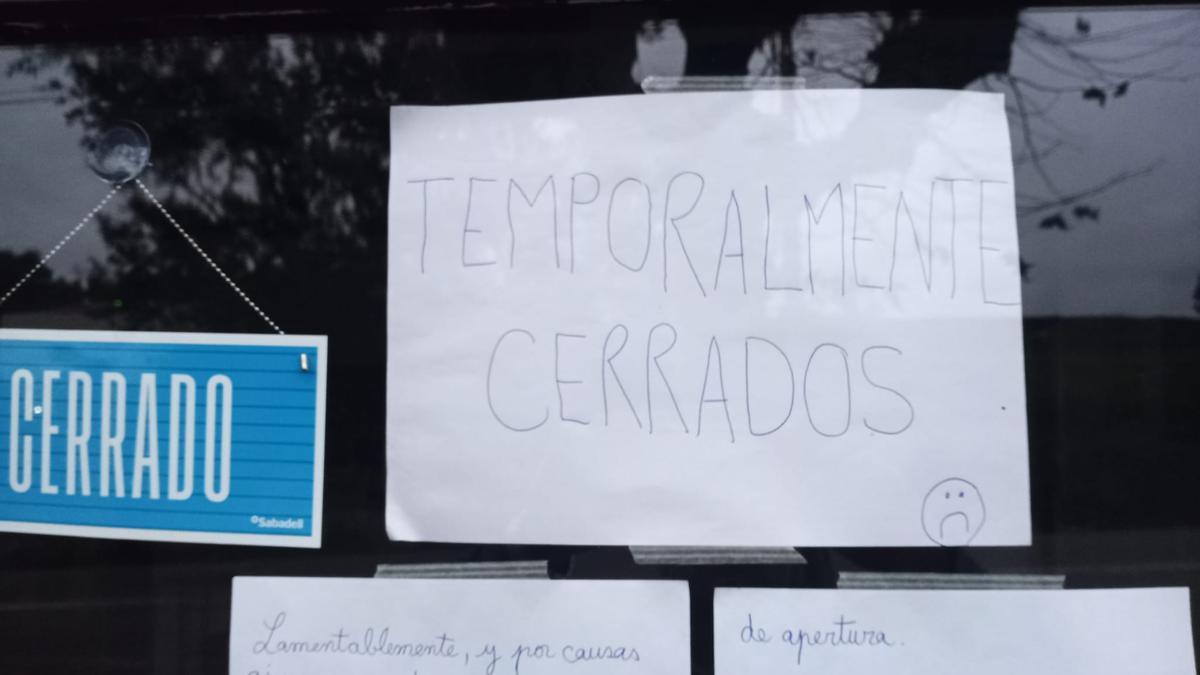 TEMPORALMENTE
CERRADOS
CERRADO
Sabadell
Lamentablemente, y por causas
de apertura.